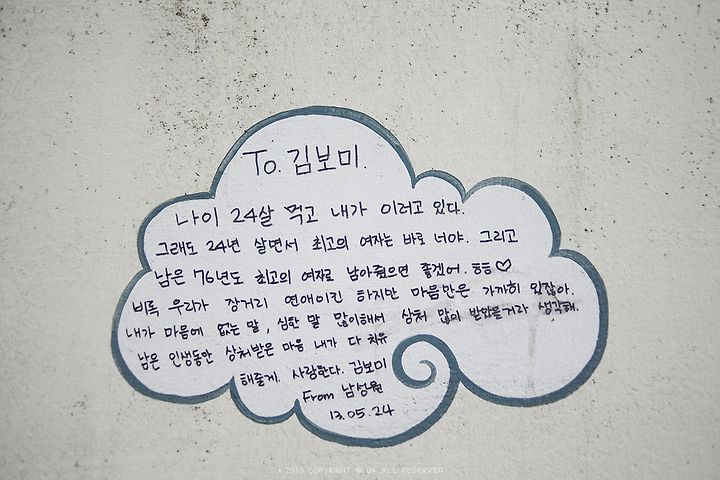 To. 김보미.
나이 24살 먹고 내가 이러고 있다.
그래도 24년 살면서 최고의 여자는 바로 너야. 그리고
남은 76년도 최고의 여자로 남아줬으면 좋겠어. ㅎㅎ♡
비록 우리가 장거리 연애이긴 하지만 마음만은 가까히 있잖아.
내가 마음에 없는 말, 심한 말 많이해서 상처 많이 받았을거라 생각해.
남은 인생동안 상처받은 마음 내가 다 치유
해줄게. 사랑한다. 김보미
From 남성원
13.05.24
2013 COPYRIGHT @ UK ALL RESERVED